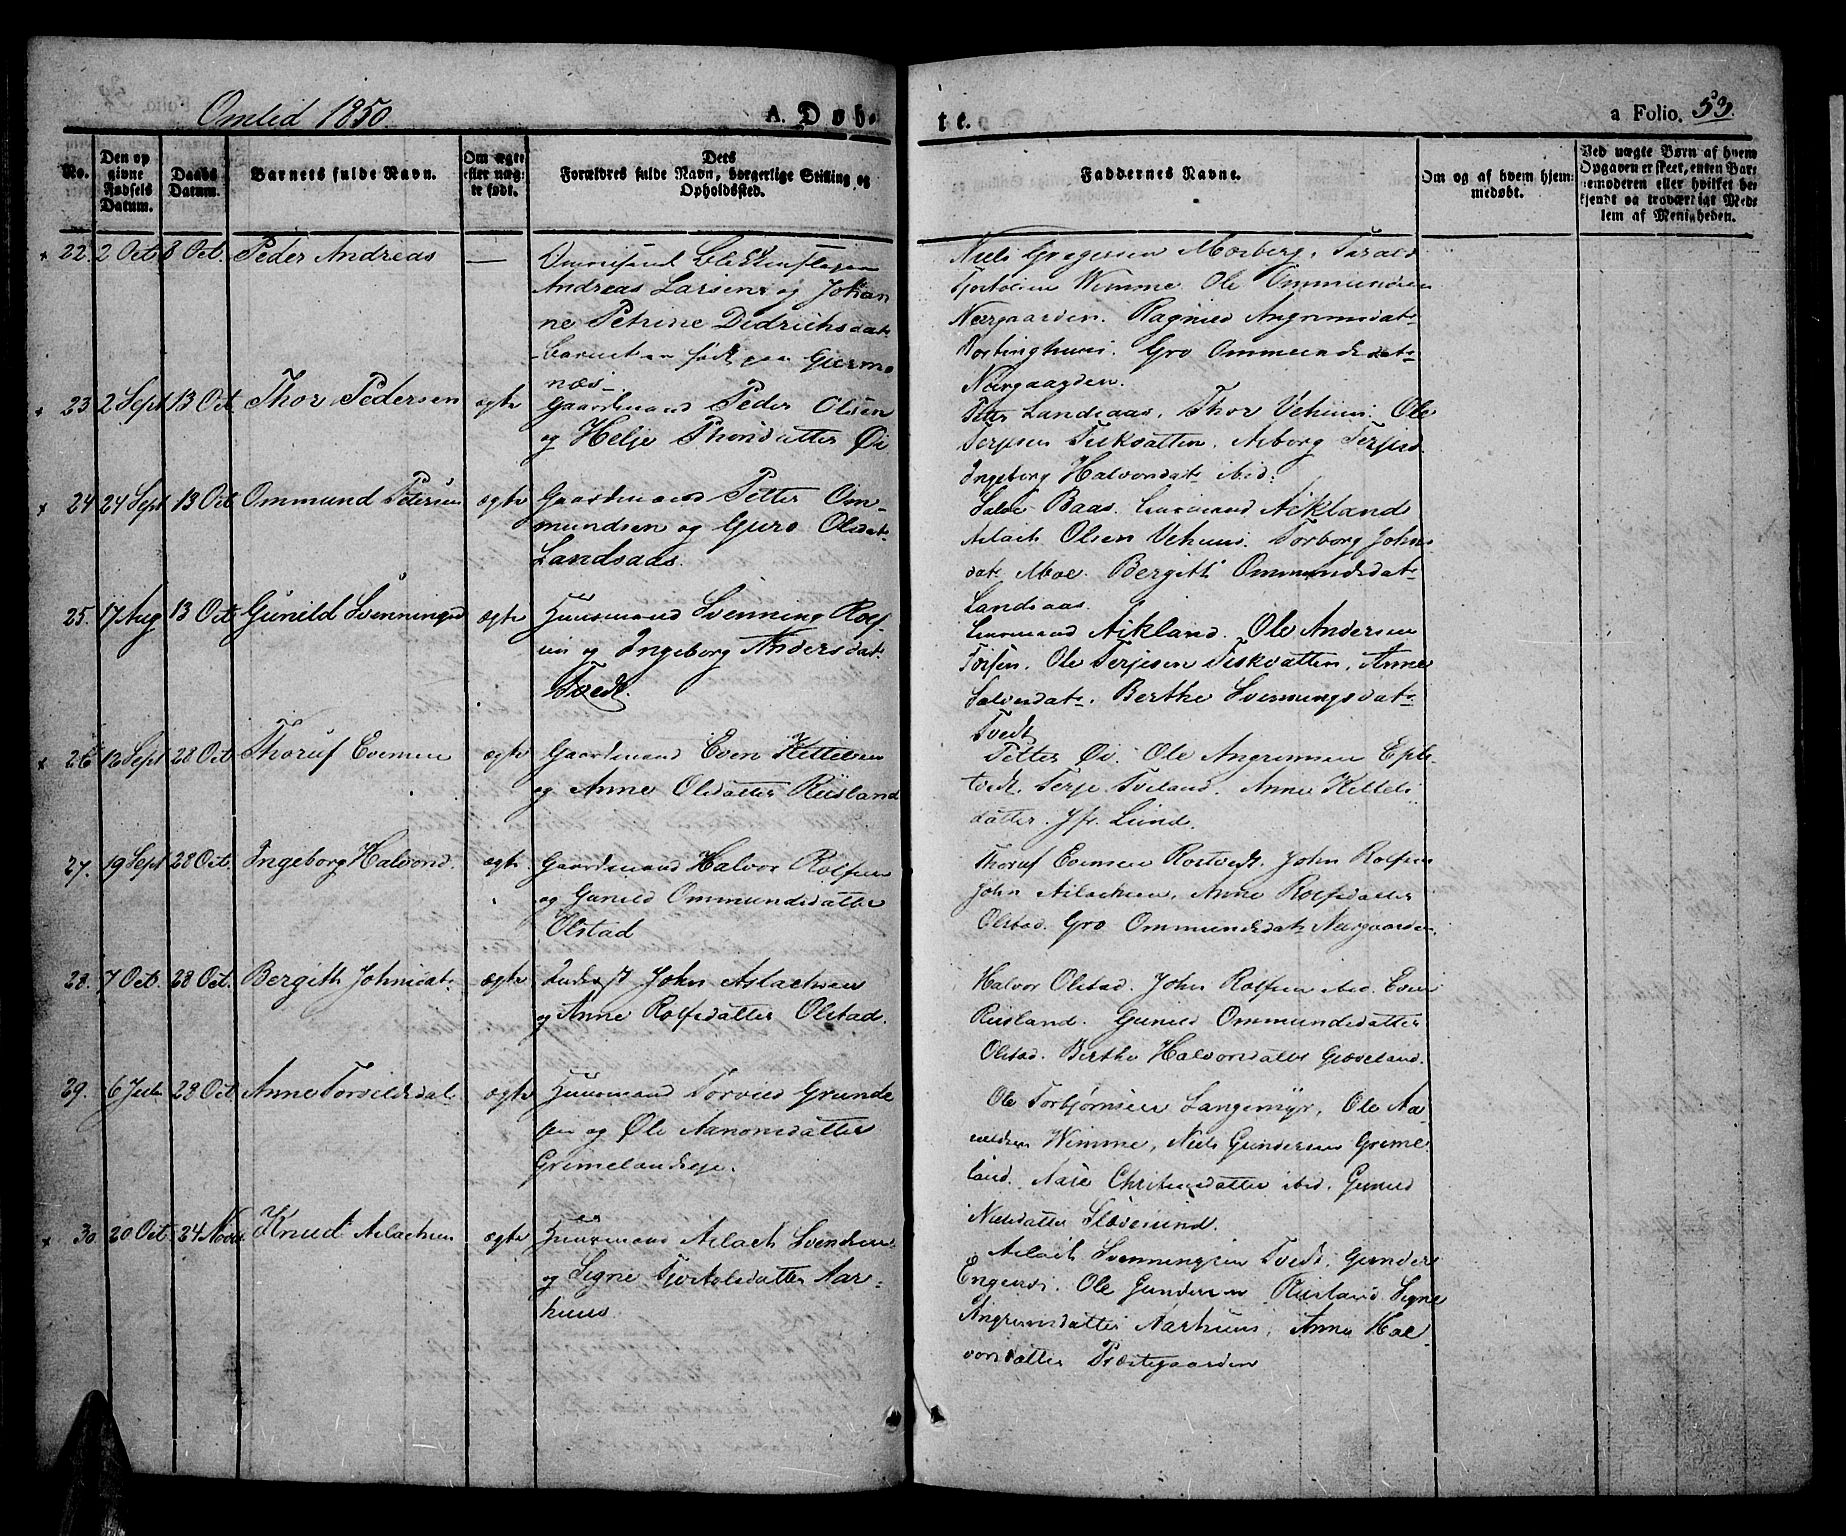 Omlid 1850.
A. Døb-
te.
a Folio. 53.
No.
Den op
givne
Fødsels
Datum.
Daabs
Datum.
Barnets fulde Navn.
Om ægte
eller uæg-
te født.
Dets
Forældres fulde Navn, borgerlige Stilling og
Opholdssted.
Faddernes Navne.
Om og af hvem hjem-
medøbt.
Ved uægte Børn af hvem
Opgaven er skeet, enten Bar-
nemoderen eller hvilket be-
kjendt og troværdigt Med-
lem af Menigheden.
22. 2 Oct 8 Oct. Peder Andreas —
Andreas Larsen og Johan
ne Petrine Didrichsdat
barnet er født paa Gjermo
næs.
Niels Gregersen Morberg, Tarald
Wimme Ole Ommundsen
Nærgaarden. Ragnild Angrimsdat
Gro Ommundsdat
Nærgaarden.
23 2 Sept 13 Oct. Thor Pedersen ægte
Gaardmand Peder Olsen
og Helje Thorsdatter Øi
Petter Landsaas, Thor Vehuus. Ole
Terjesen Fiskvatten, Asborg Terjesd.
Ingeborg Halvorsdat ibid.
24 24 Sept 13 Oct Ommund Petersen ægte
Gaardmand Petter Om-
mundsen og Guro Olsdat
Landsaas.
Baas. Lensmand Aikland
Aslach Olsen Vehuus. Torborg Johns
dat Moe. Bergith Ommundsdat
Landsaas
25. 17 Aug 13 Oct Gunild Svenningsd ægte
Huusmand Svenning Rolf-
sen og Ingeborg Andersdat
Tvedt.
Lensmand Aikland. Ole Andersen
Ole Terjesen Fiskvatten, Anne
Salvesdat. Berthe Svenningsdat
Tvedt
26 12 Sept 28 Oct Thoruf Evensen ægte
Gaardmand Even Kittelsen
og Anne Olsdatter Risland
Petter Øi. Ole Angrimsen Eple-
tvedt. Terje Tveland. Anne Kittels
datter. Jfr. Lund.
27. 19 Sept 28 Oct. Ingeborg Halvorsd. ægte.
Gaardmand Halvor Rolfsen
og Gunild Ommundsdatter
Olstad
Thoruf Evensen Rostvedt. John Rolfsen
John Aslachsen, Anne Rolfsdatter
Olstad. Gro Ommundsdat Nærgaarden.
28. 7 Oct. 28 Oct. Bergith Johnsdat ægte
Inderst John Aslachsen
og Anne Rolfsdatter Olstad.
Halvor Olstad. John Rolfsen ibid. Even
Risland. Gunild Ommundsdatter
Olstad. Berthe Halvorsdatter Gjøveland.
29. 28 Oct Anne Torvildsdat ægte
Huusmand Torvild Grunde
sen og Øle Aanonsdatter
Grimelandseje.
Ole Torbjørnsen Langemyr, Ole Aa-
nildsen Wimme, Niels Gundersen Grime-
land. Aase Christensdatter ibid. Gunild
Nielsdatter Støvesund.
30. 20 Oct. 24 Novbr Knud Aslachsen ægte
Huusmand Aslach Svendsen
og Signe Tjostolsdatter Aar-
huus.
Aslach Svenningsen Tvedt. Gunder
Ole Gundersen Risland. Signe
Angrimsdatter Aarhuus, Anne Hal
vorsdatter Præstegaarden